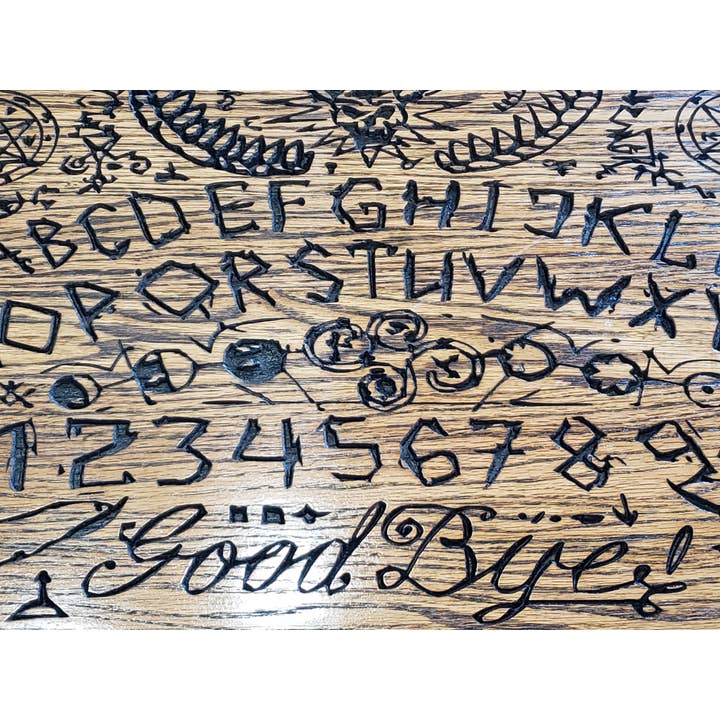 ABCDEFGHIJKL
OPQRSTUVWX
123456789
Good Bye